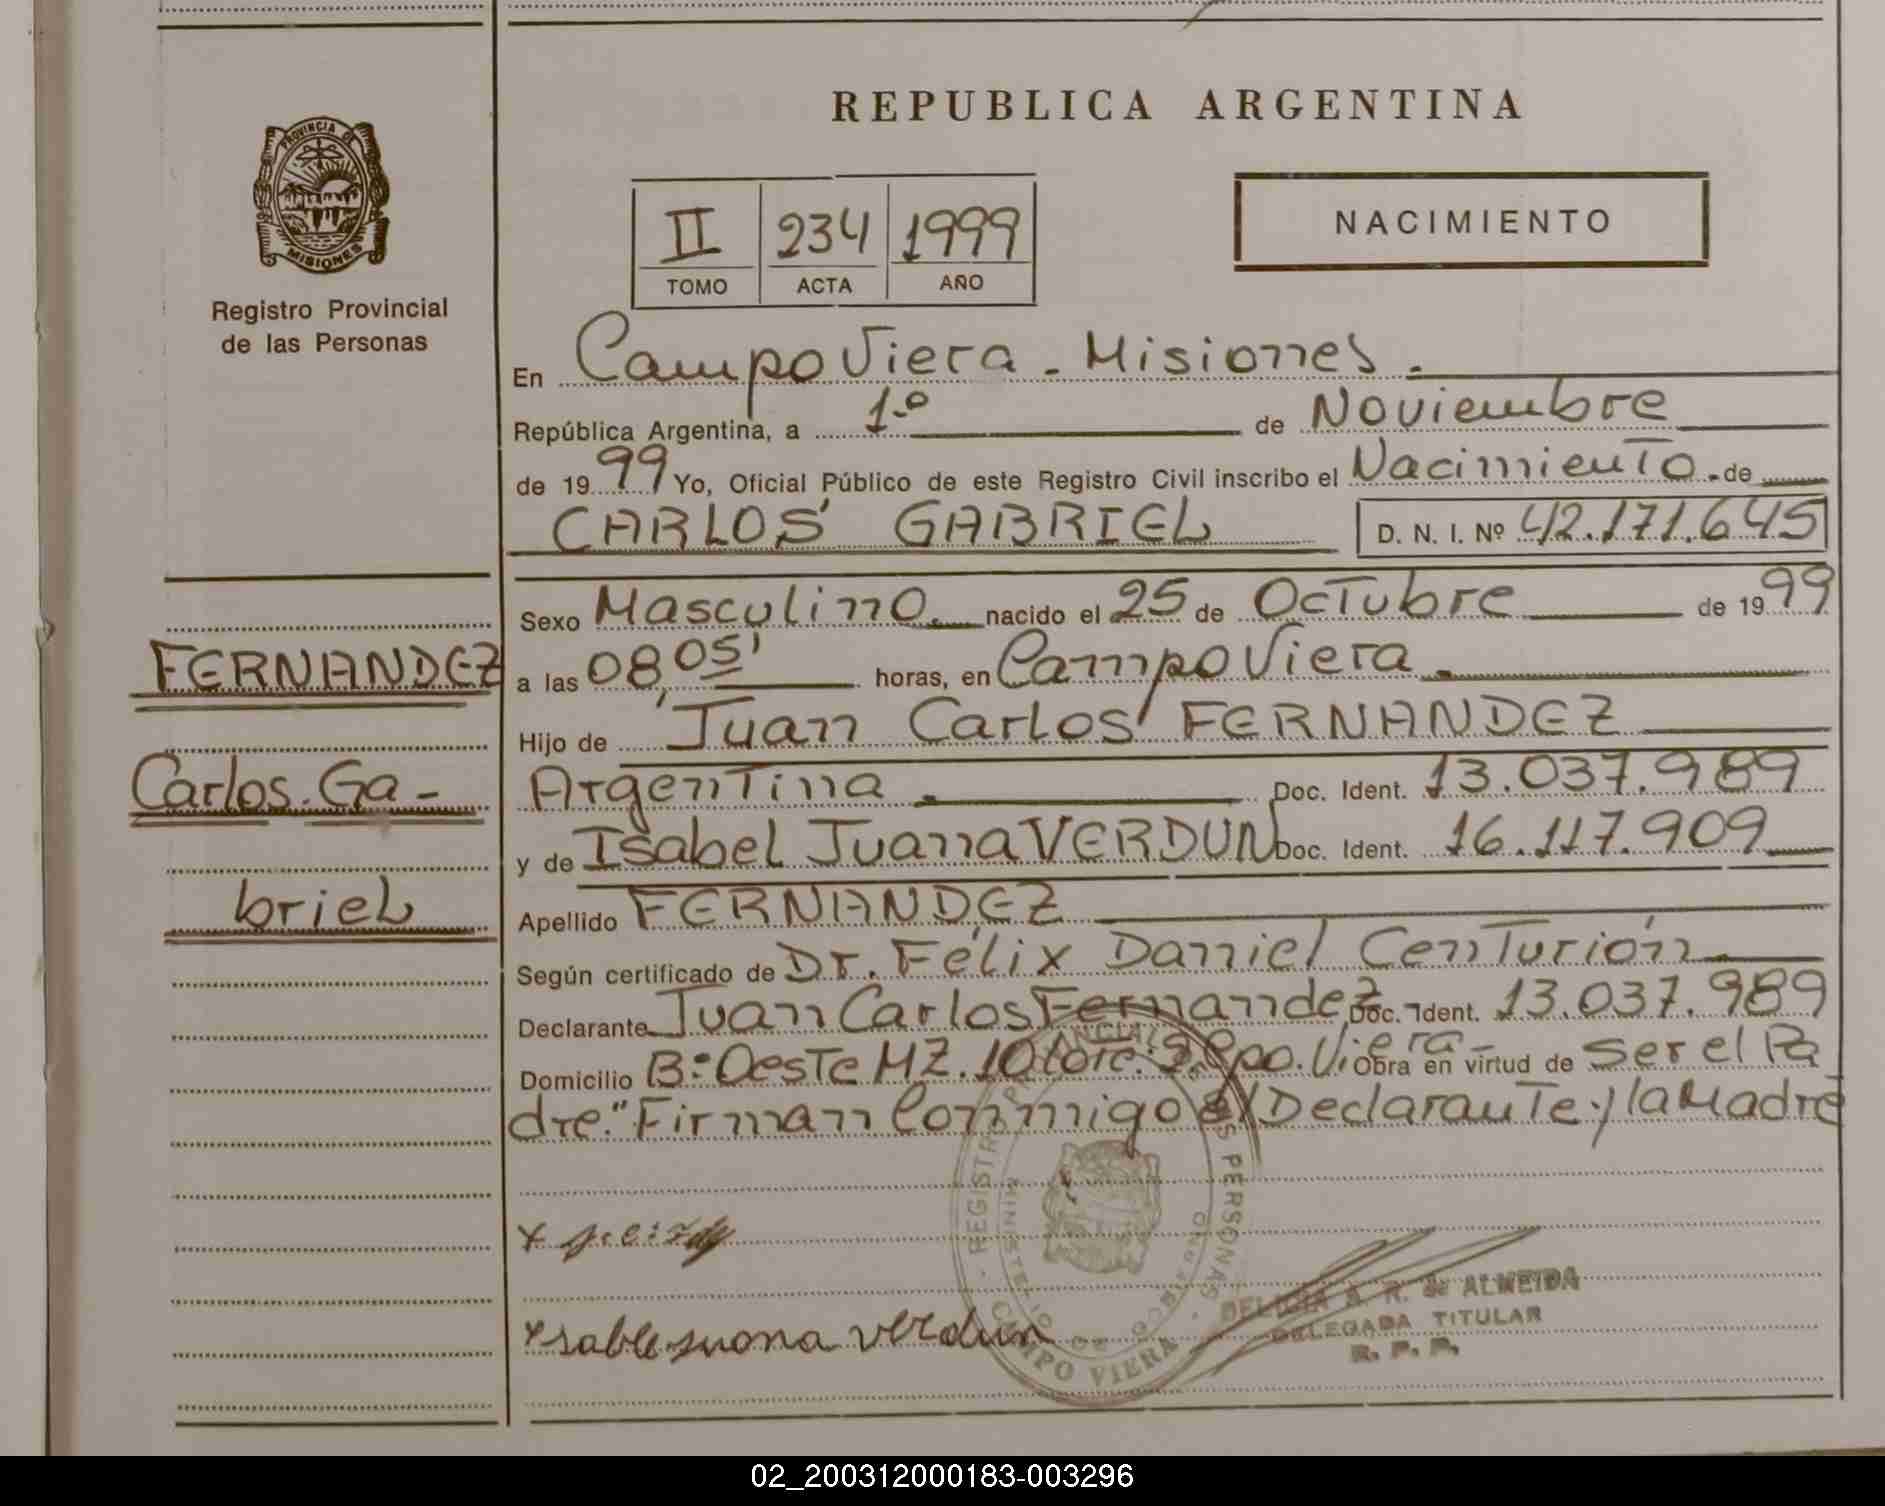 REPUBLICA ARGENTINA
PROVINCIA DE
MISIONES
Registro Provincial
de las Personas
II 234 1999
TOMO ACTA AÑO
NACIMIENTO
En Campo Viera - Misiones.
República Argentina, a 1.º de Noviembre
de 1999 Yo, Oficial Público de este Registro Civil inscribo el Nacimiento de
CARLOS GABRIEL D. N. I. Nº 42.171.645
Sexo Masculino. nacido el 25 de Octubre de 1999
FERNANDEZ
a las 08,05' horas, en Campo Viera.
Hijo de Juan Carlos FERNANDEZ
Carlos Ga-
Argentina. Doc. Ident. 13.037.989
y de Isabel Juana VERDUN Doc. Ident. 16.117.909
briel
Apellido FERNANDEZ
Según certificado de Dr. Félix Daniel Centurión
Declarante Juan Carlos Fernandez Doc. Ident. 13.037.989
Domicilio B:º Oeste MZ. 10 lote: Cpo. Viera- Obra en virtud de ser el Pa
dre." Firman Conmigo el Declarante y la Madre
Ysable suona verdun
REGISTRO PROVINCIAL DE LAS PERSONAS
MINISTERIO DE GOBIERNO
CAMPO VIERA
DELICIA A. R. de ALMEIDA
DELEGADA TITULAR
R. P. P.
02_200312000183-003296